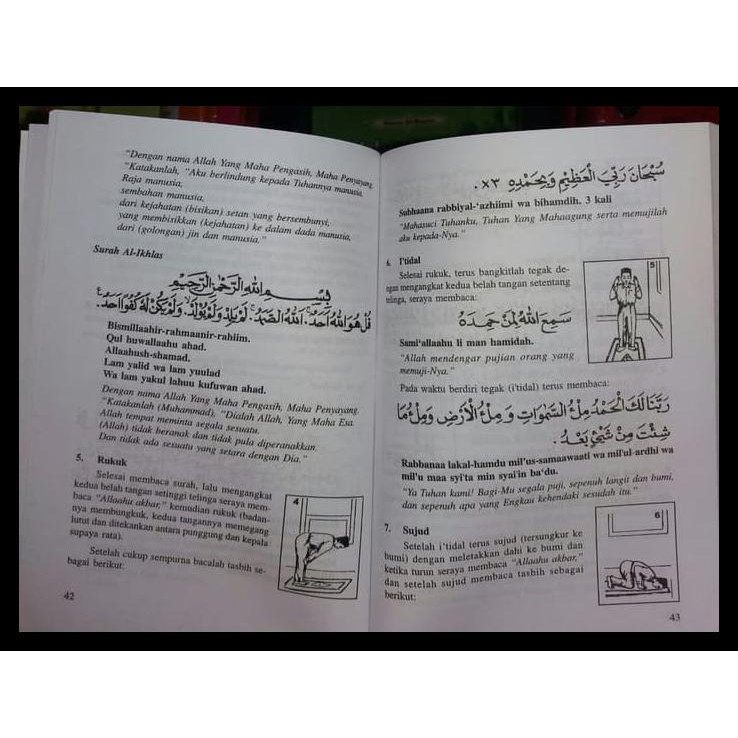 "Dengan nama Allah Yang Maha Pengasih, Maha Penyayang,
"Katakanlah, "Aku berlindung kepada Tuhannya manusia,
Raja manusia,
sembahan manusia,
dari kejahatan (bisikan) setan yang bersembunyi,
yang membisikkan (kejahatan) ke dalam dada manusia,
dari (golongan) jin dan manusia."
Surah Al-Ikhlas
بِسْمِ اللهِ الرَّحْمٰنِ الرَّحِيْمِ
قُلْ هُوَ اللهُ اَحَدٌ. اَللهُ الصَّمَدُ. لَمْ يَلِدْ وَلَمْ يُوْلَدْ. وَلَمْ يَكُنْ لَهُ كُفُوًا اَحَدٌ.
Bismillaahir-rahmaanir-rahiim.
Qul huwallaahu ahad.
Allaahush-shamad.
Lam yalid wa lam yuulad
Wa lam yakul lahuu kufuwan ahad.
Dengan nama Allah Yang Maha Pengasih, Maha Penyayang.
"Katakanlah (Muhammad), "Dialah Allah, Yang Maha Esa.
Allah tempat meminta segala sesuatu.
(Allah) tidak beranak dan tidak pula diperanakkan.
Dan tidak ada sesuatu yang setara dengan Dia."
5. Rukuk
Selesai membaca surah, lalu mengangkat
kedua belah tangan setinggi telinga seraya mem-
baca "Allaahu akbar," kemudian rukuk (badan-
nya membungkuk, kedua tangannya memegang
lutut dan ditekankan antara punggung dan kepala
supaya rata).
Setelah cukup sempurna bacalah tasbih se-
bagai berikut:
4
42
سُبْحَانَ رَبِّيَ الْعَظِيْمِ وَبِحَمْدِهِ ×٣.
Subhaana rabbiyal-'azhiimi wa bihamdih. 3 kali
"Mahasuci Tuhanku, Tuhan Yang Mahaagung serta memujilah
aku kepada-Nya."
6. I'tidal
Selesai rukuk, terus bangkitlah tegak de-
ngan mengangkat kedua belah tangan setentang
telinga, seraya membaca:
5
سَمِعَ اللهُ لِمَنْ حَمِدَهُ
Sami'allaahu li man hamidah.
"Allah mendengar pujian orang yang
memuji-Nya."
Pada waktu berdiri tegak (i'tidal) terus membaca:
رَبَّنَا لَكَ الْحَمْدُ مِلْءُ السَّمٰوَاتِ وَمِلْءُ الْاَرْضِ وَمِلْءُ مَا
شِئْتَ مِنْ شَيْءٍ بَعْدُ.
Rabbanaa lakal-hamdu mil'us-samaawaati wa mil'ul-ardhi wa
mil'u maa syi'ta min syai'in ba'du.
"Ya Tuhan kami! Bagi-Mu segala puji, sepenuh langit dan bumi,
dan sepenuh apa yang Engkau kehendaki sesudah itu."
7. Sujud
Setelah i'tidal terus sujud (tersungkur ke
bumi) dengan meletakkan dahi ke bumi dan
ketika turun seraya membaca "Allaahu akbar,"
dan setelah sujud membaca tasbih sebagai
berikut:
6
43